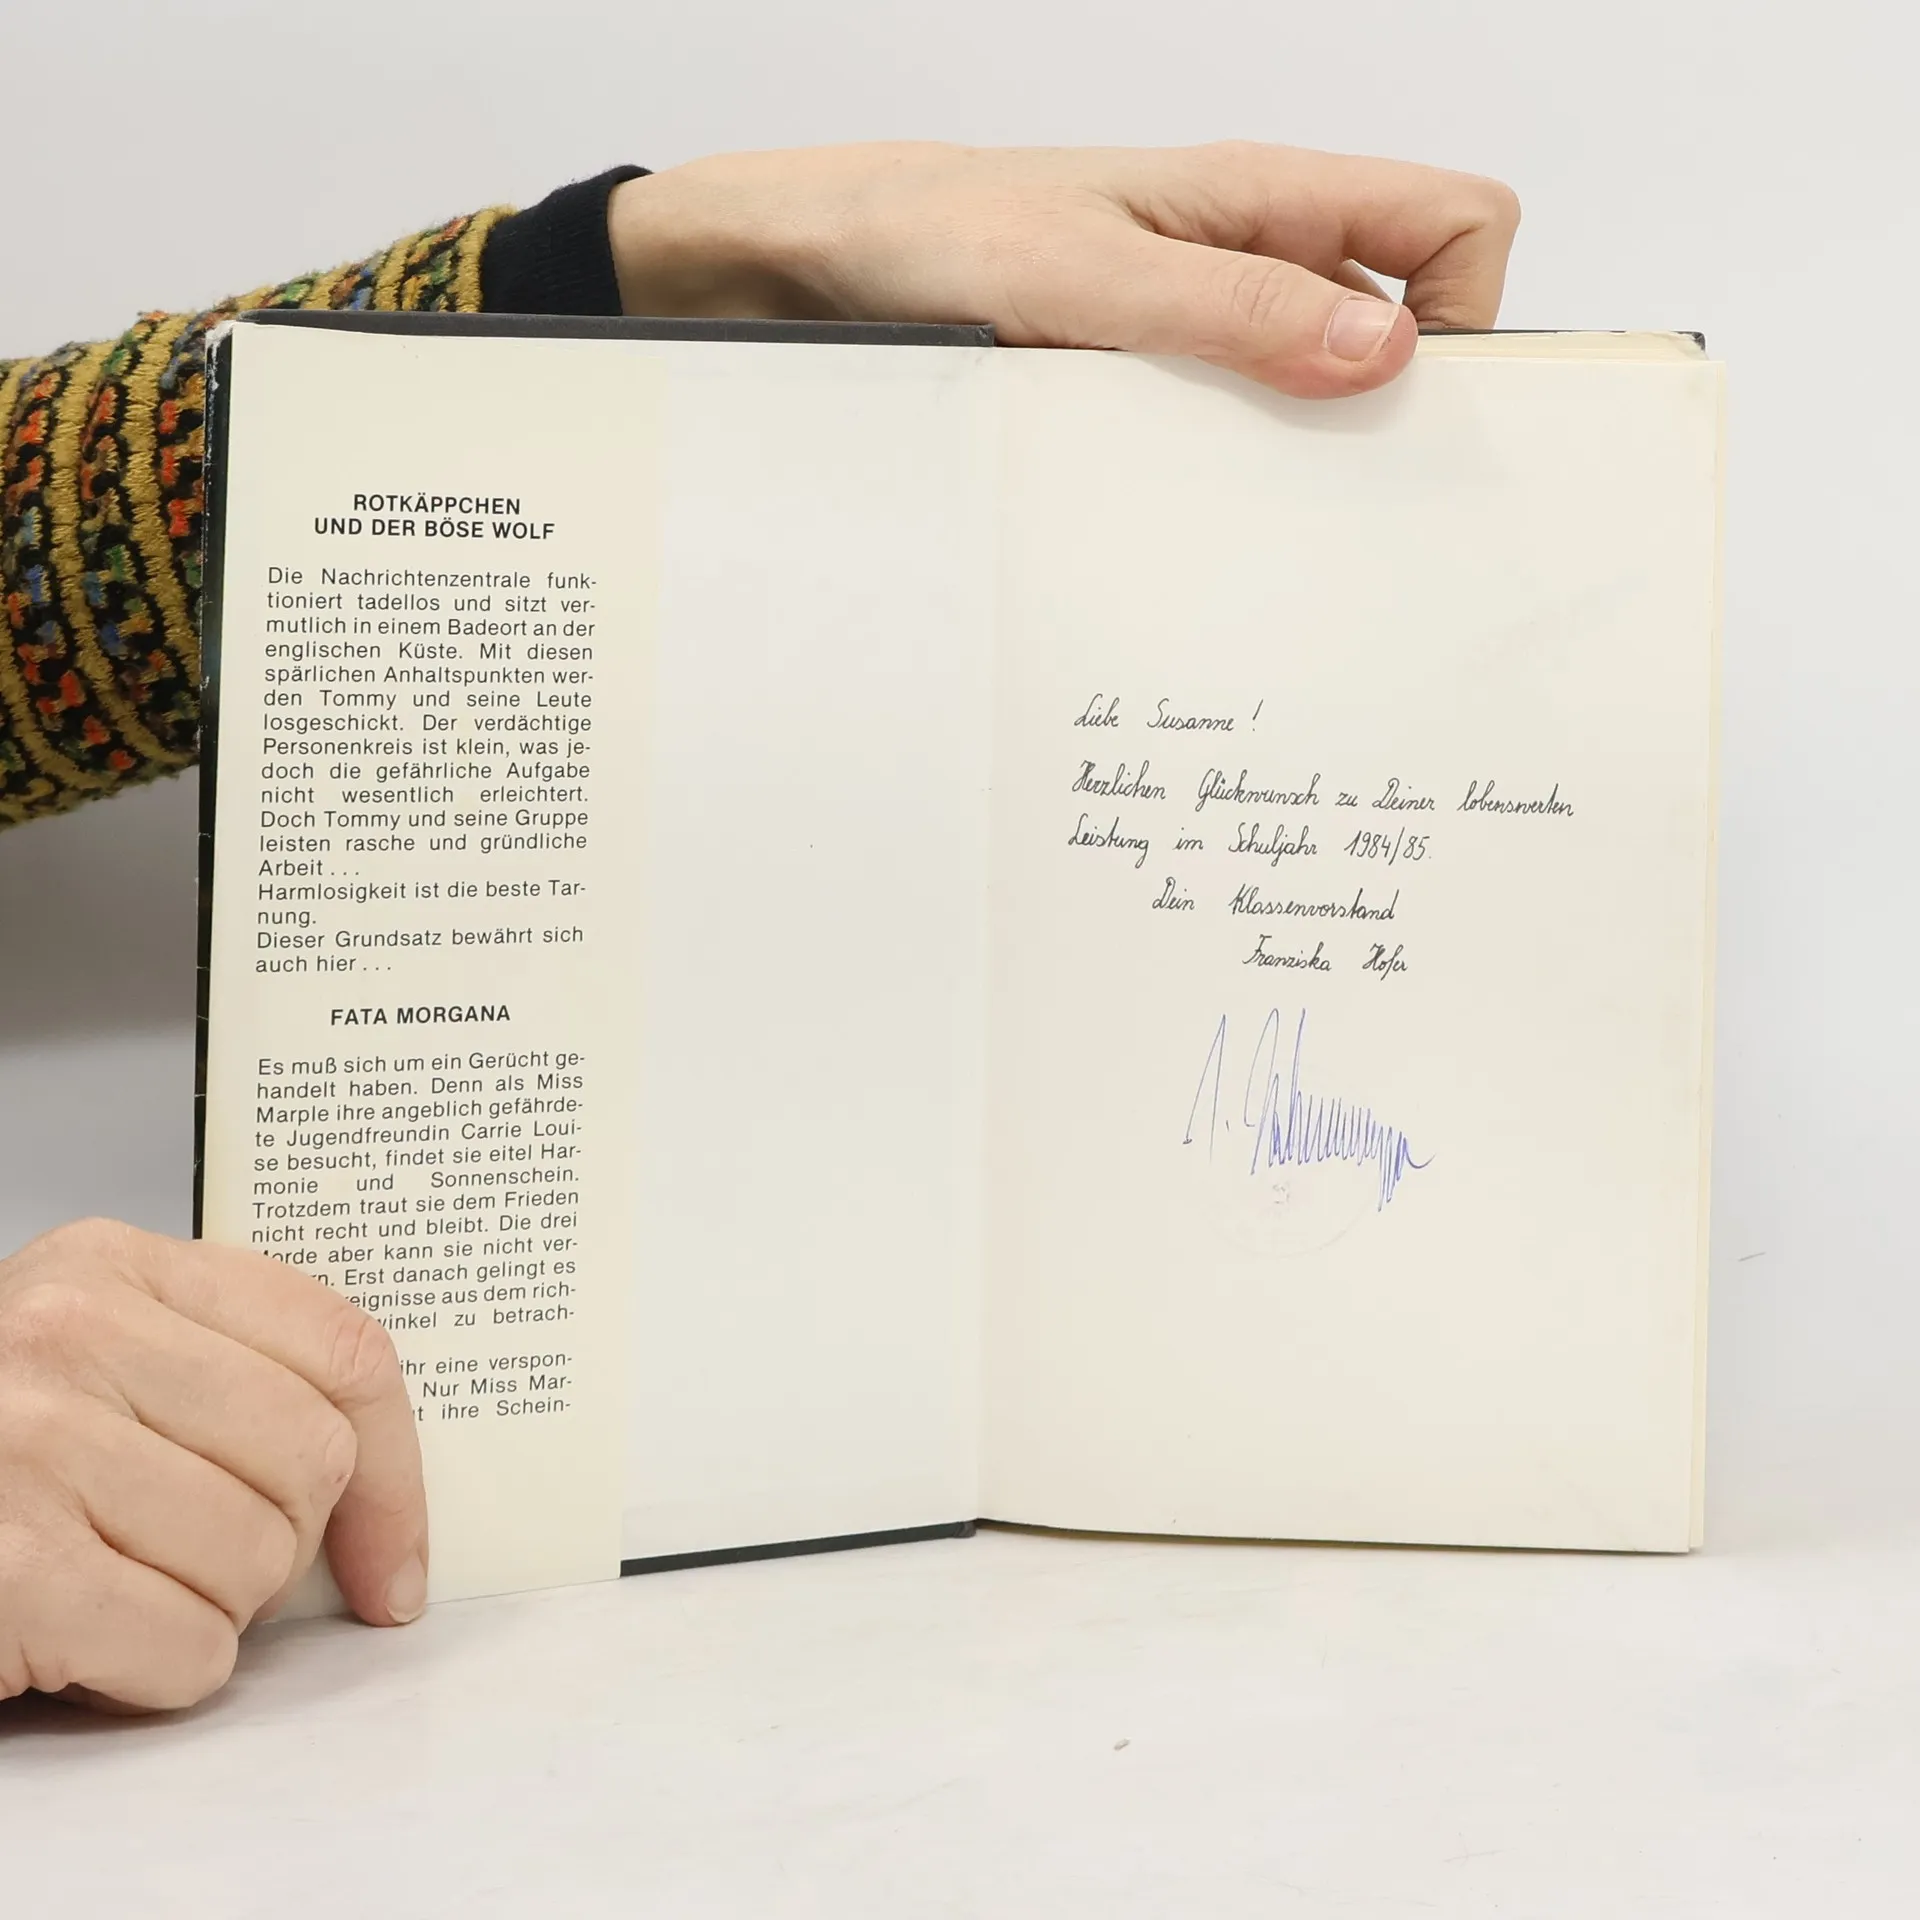 ROTKÄPPCHEN
UND DER BÖSE WOLF
Die Nachrichtenzentrale funk-
tioniert tadellos und sitzt ver-
mutlich in einem Badeort an der
englischen Küste. Mit diesen
spärlichen Anhaltspunkten wer-
den Tommy und seine Leute
losgeschickt. Der verdächtige
Personenkreis ist klein, was je-
doch die gefährliche Aufgabe
nicht wesentlich erleichtert.
Doch Tommy und seine Gruppe
leisten rasche und gründliche
Arbeit . . .
Harmlosigkeit ist die beste Tar-
nung.
Dieser Grundsatz bewährt sich
auch hier . . .
FATA MORGANA
Es muß sich um ein Gerücht ge-
handelt haben. Denn als Miss
Marple ihre angeblich gefährde-
te Jugendfreundin Carrie Loui-
se besucht, findet sie eitel Har-
monie und Sonnenschein.
Trotzdem traut sie dem Frieden
nicht recht und bleibt. Die drei
orde aber kann sie nicht ver-
n. Erst danach gelingt es
eignisse aus dem rich-
winkel zu betrach-
ihr eine verspon-
Nur Miss Mar-
t ihre Schein-
Liebe Susanne !
Herzlichen Glückwunsch zu Deiner lobenswerten
Leistung im Schuljahr 1984/85.
Dein Klassenvorstand
Franziska Hofer